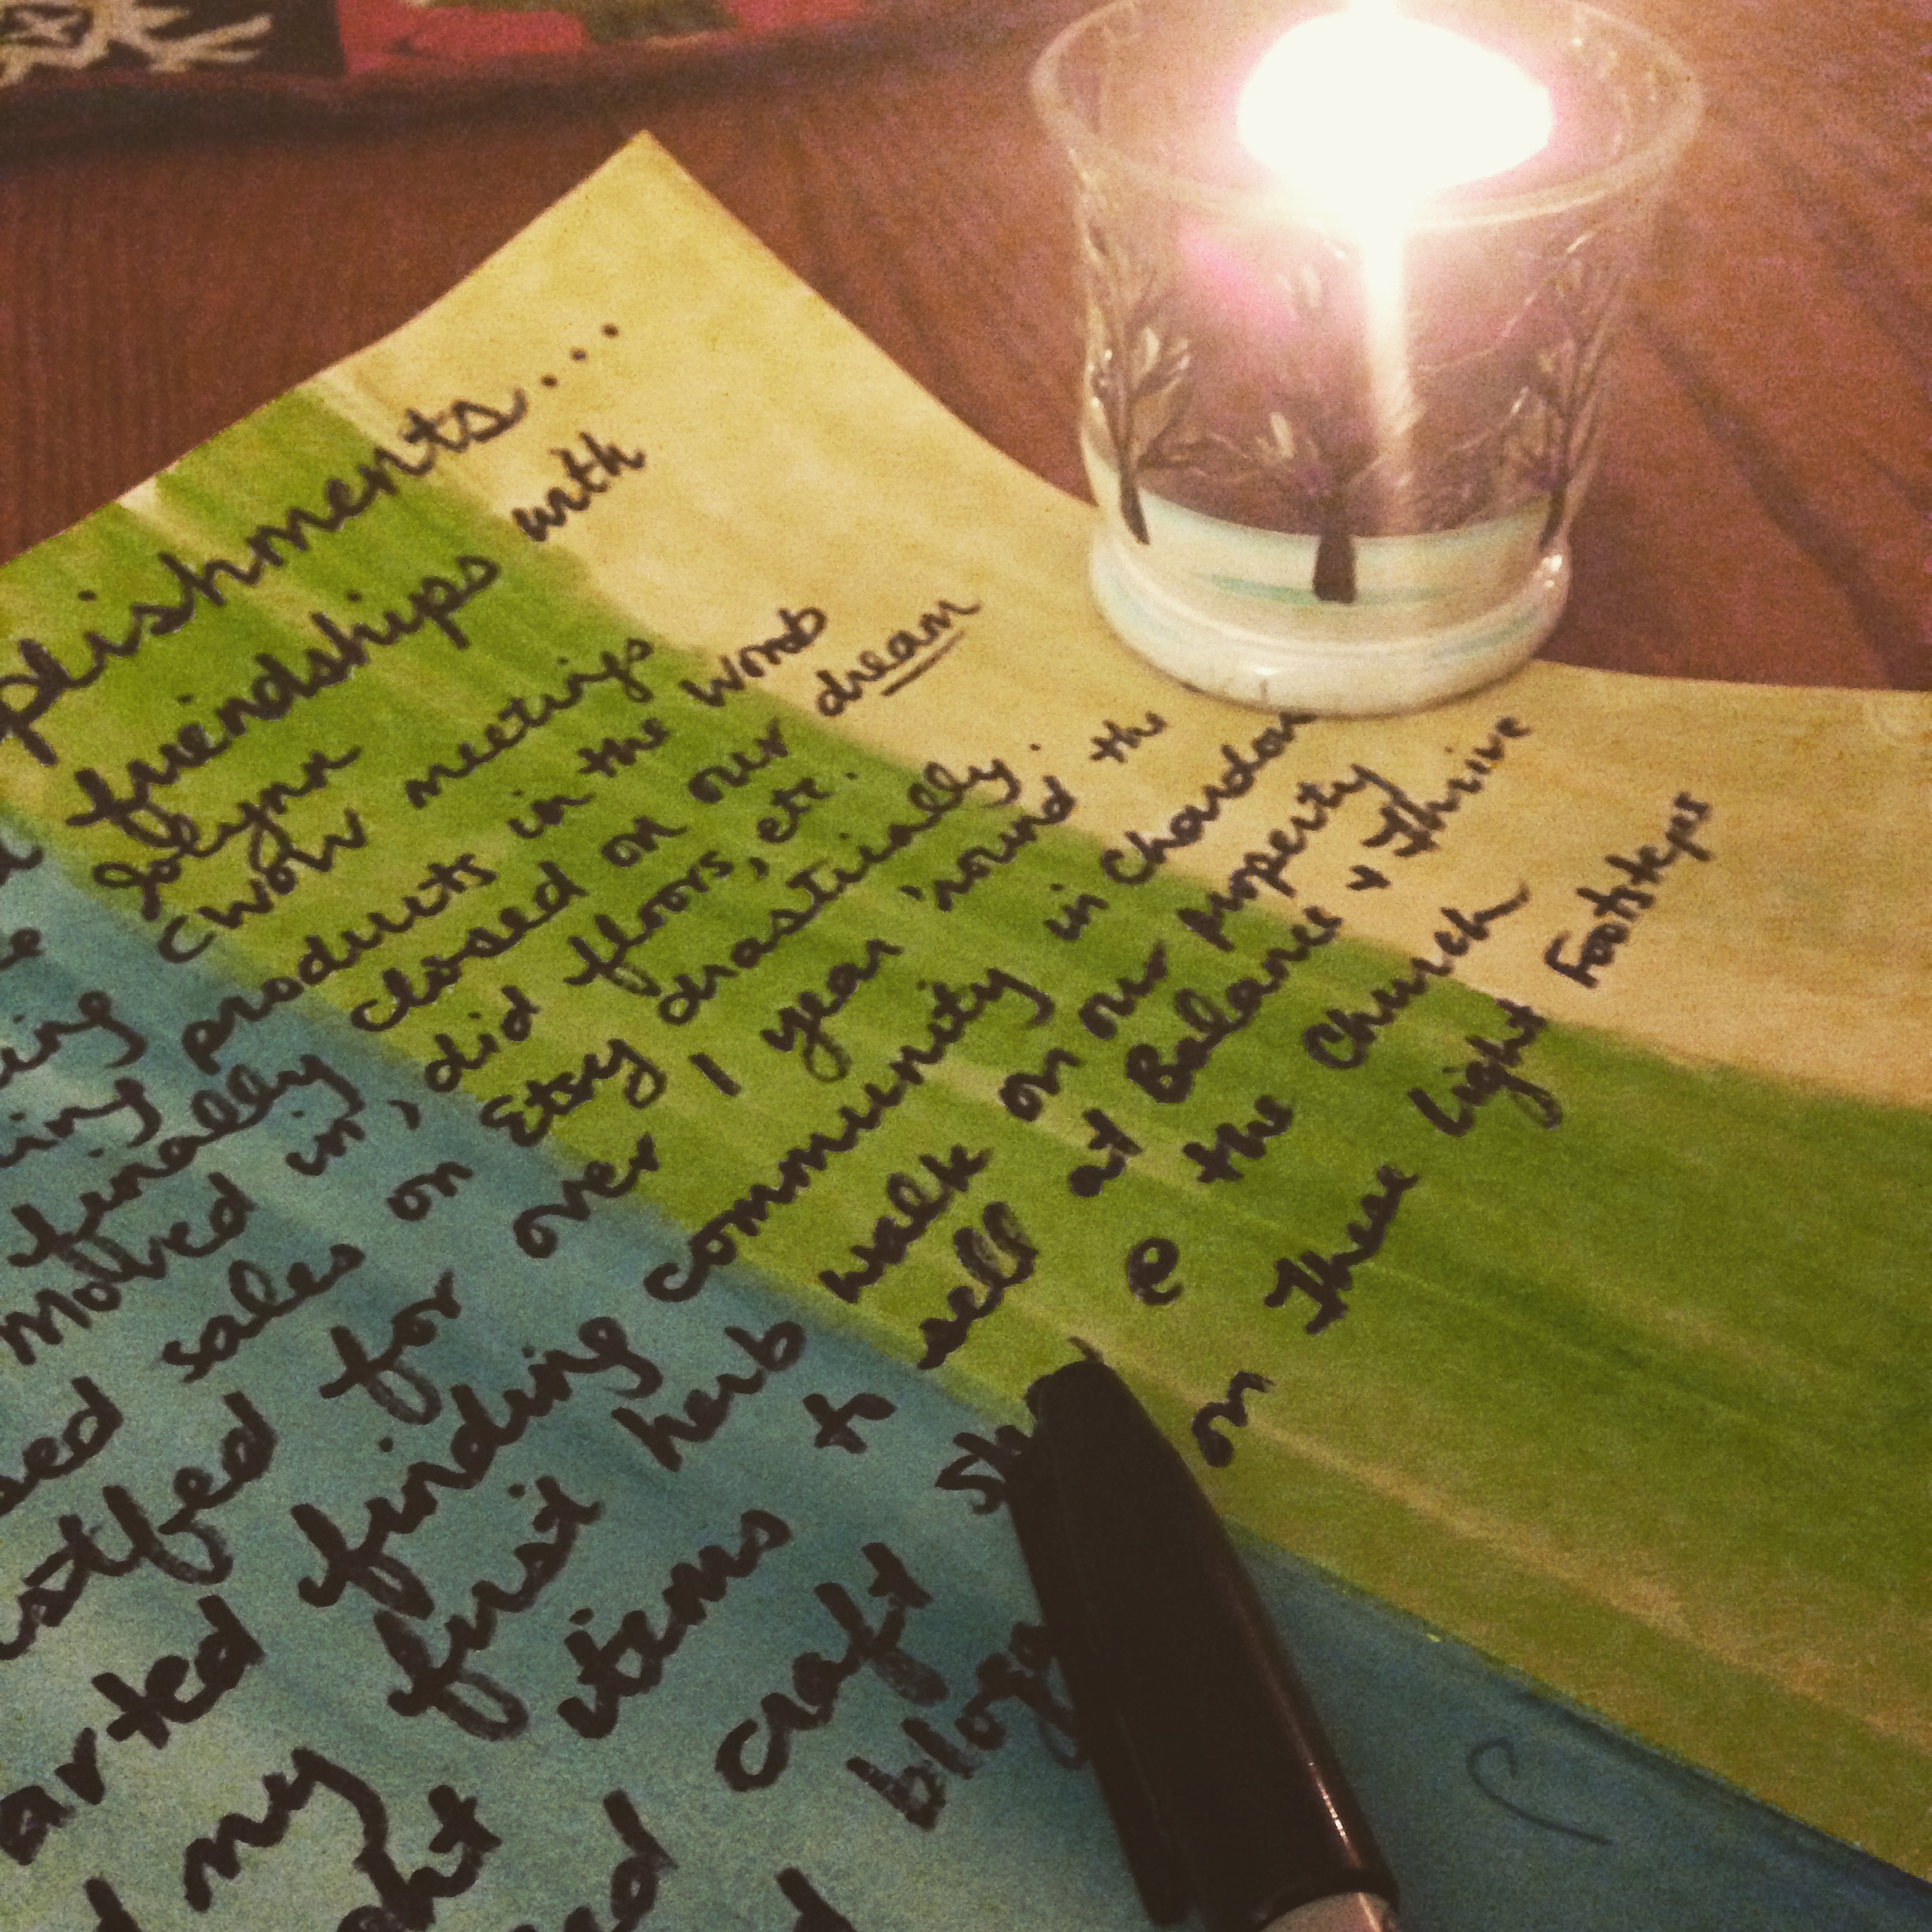 plishments....
friendships with
Solynn
CWOW meetings
ing products in the womb
finally closed on our dream
Moved in, did floors, etc.
sed sales on Etsy drastically.
stfed for over 1 year 'round th
arted finding community in Chardon
my first herb walk on our property
ght items to sell at Balance & Thrive
ed craft @ the Church
blog on These Light Footsteps